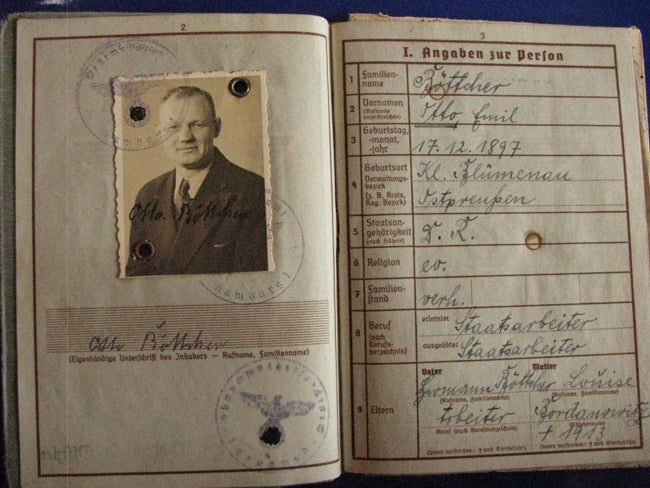 2
Otto Böttcher
Hamburg 1
Otto Böttcher
(Eigenhändige Unterschrift des Inhabers — Rufname, Familienname)
3
I. Angaben zur Person
1 Familien-
name
Böttcher
2 Vornamen
(Rufname
unterstreichen)
Otto Emil
3 Geburtstag,
-monat,
-jahr
17.12.1897
4 Geburtsort
Verwaltungs-
bezirk
(z. B. Kreis,
Reg. Bezirk)
Kl. Blümenau
Ostpreußen
5 Staatsan-
gehörigkeit
(auch frühere)
D. R.
6 Religion
ev.
7 Familien-
stand
verh.
8 Beruf
(nach
Berufs-
verzeichnis)
erlernter
Staatsarbeiter
ausgeübter
Staatsarbeiter
9 Eltern
Vater Mutter
Hermann Böttcher Louise
(Rufname, Familienname) (Rufname, Familienname)
Arbeiter Jordanowitz
Beruf (nach Berufsverzeichnis)
† 1913
(wenn verstorben: † und Sterbejahr) (wenn verstorben: † und Sterbejahr)